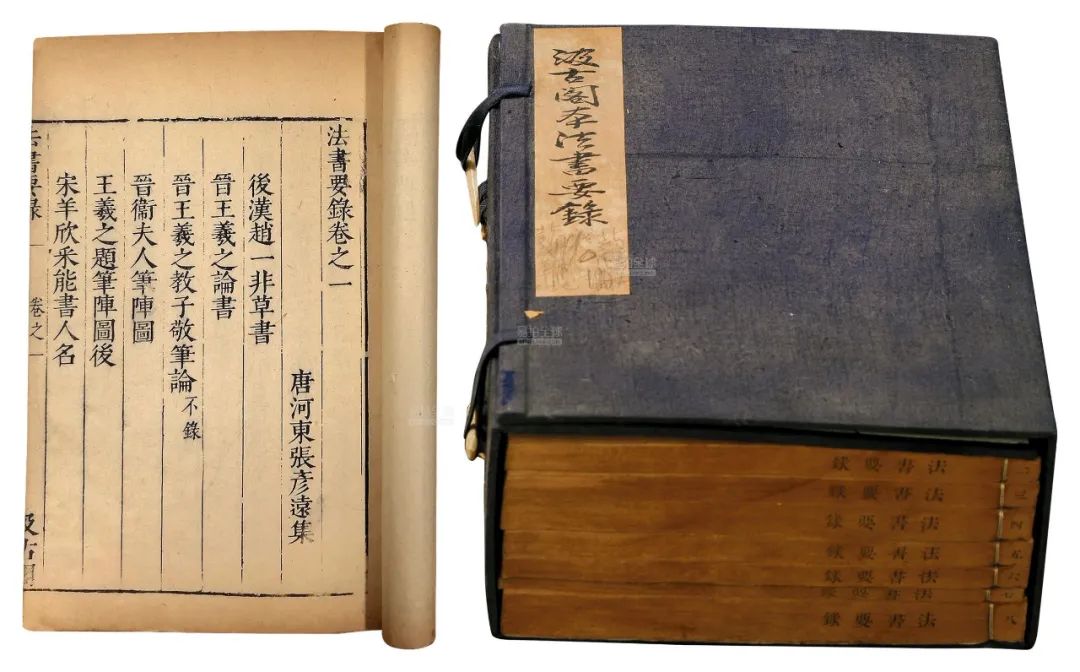 法書要錄卷之一
唐河東張彥遠集
後漢趙一非草書
晉王羲之論書
晉王羲之教子敬筆論不錄
晉衞夫人筆陣圖
王羲之題筆陣圖後
宋羊欣釆能書人名
法書要錄
卷之一
汲古閣
汲古閣本法書要錄
法書要錄
法書要錄 三
法書要錄 四
法書要錄 五
法書要錄 六
法書要錄 七
法書要錄 八
易拍全球